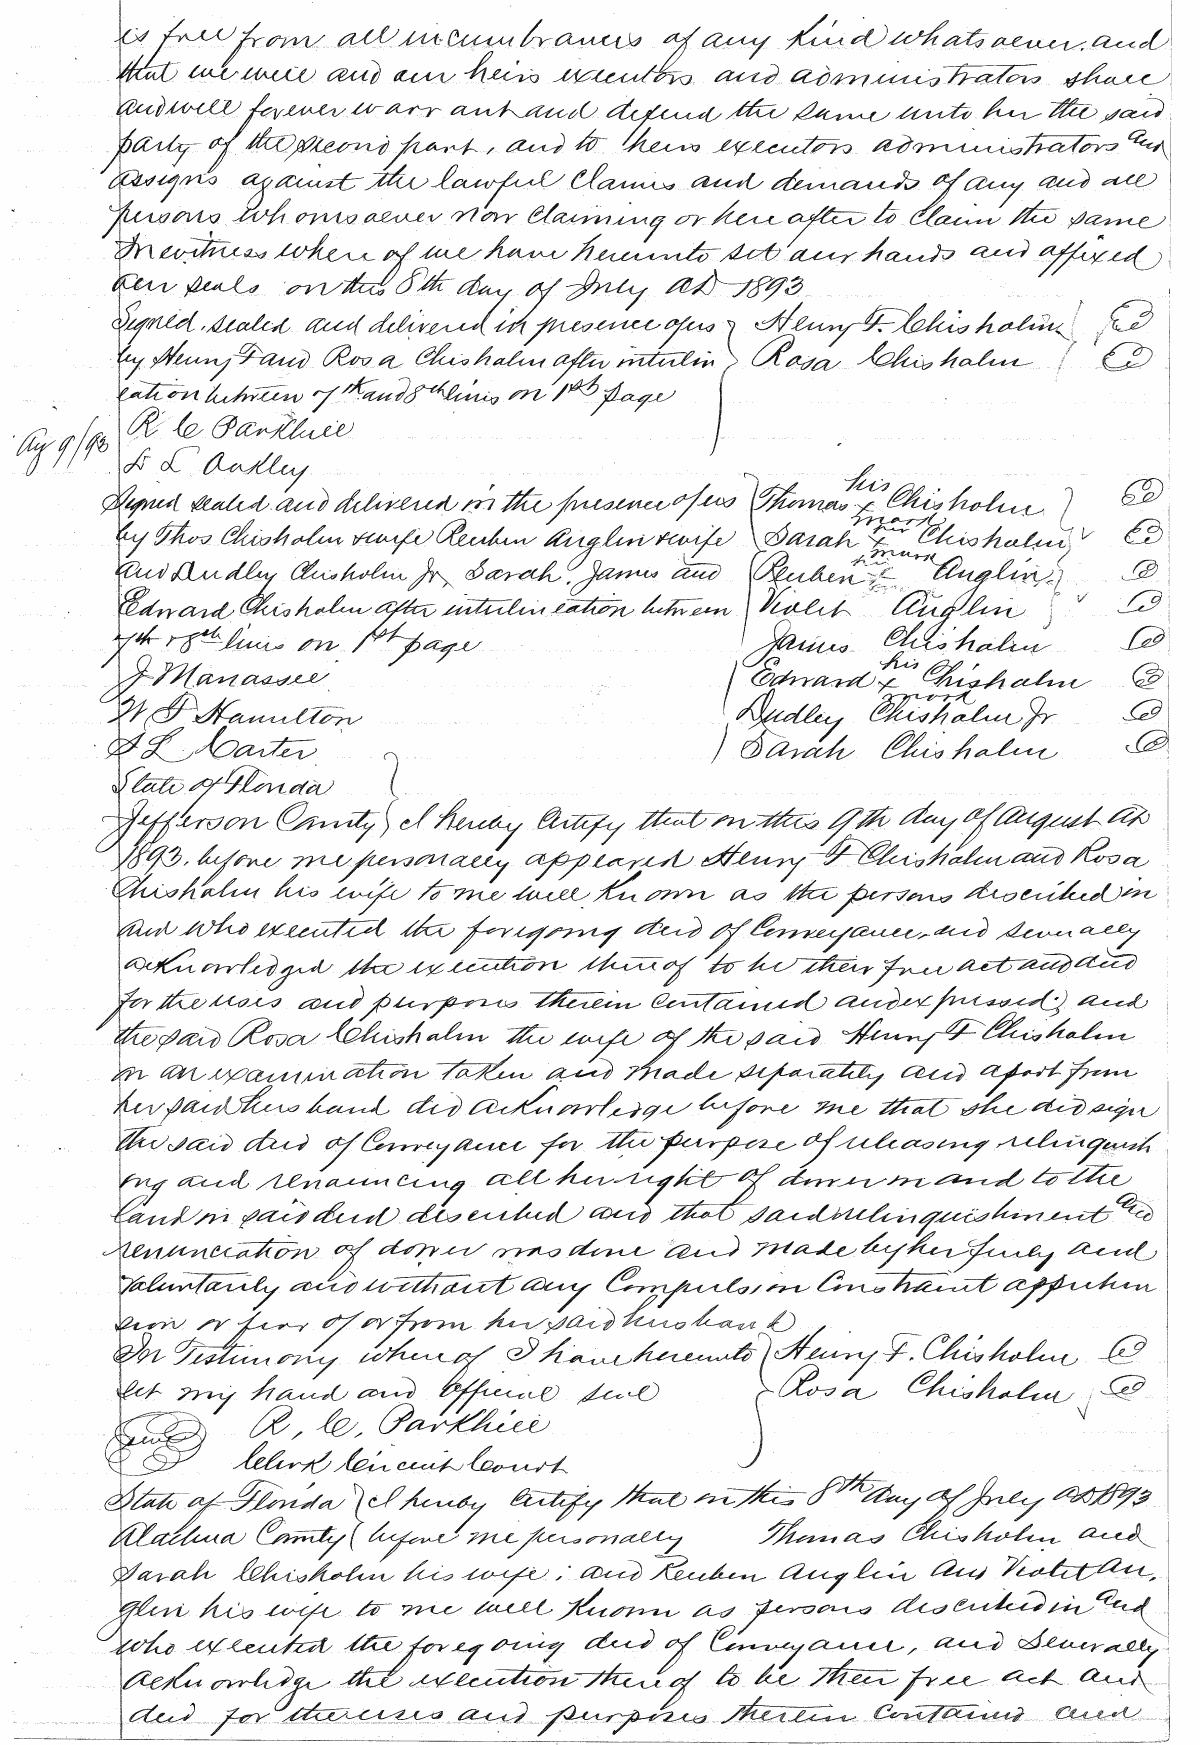 is free from all incumbrances of any kind whatsoever. and
that we will and our heirs executors and administrators shall
and will forever warrant and defend the same unto her the said
party of the second part, and to heirs executors administrators and
assigns against the lawful claims and demands of any and all
persons whomsoever now claiming or here after to claim the same
In witness where of we have hereunto set our hands and affixed
our seals on this 8th day of July AD 1893
Signed. sealed and delivered in presence of us } Henry F. Chisholm
by Henry F and Rosa Chisholm after interlin } Rosa Chisholm
eation between 7th and 8th lines on 1st page
R C Parkhill
Ag 9/93
L Oakley
Signed sealed and delivered in the presence of us Thomas his x mark Chisholm
by Thos Chisholm & wife Reuben Anglin & wife Sarah her x mark Chisholm
and Dudley Chisholm Jr, Sarah, James and Reuben his x Anglin
Edward Chisholm after interlineation between Violet Anglin
7th & 8th lines on 1st page James Chisholm
J. Manassee Edward his x mark Chisholm
W T Hamilton Dudley Chisholm Jr
L. Carter Sarah Chisholm
State of Florida
Jefferson County } I hereby certify that on this 9th day of August AD
1893. before me personally appeared Henry F Chisholm and Rosa
Chisholm his wife to me well known as the persons described in
and who executed the foregoing deed of Conveyance, and severally
acknowledged the execution thereof to be their free act and deed
for the uses and purposes therein contained and expressed; and
the said Rosa Chisholm the wife of the said Henry F Chisholm
on an examination taken and made separately and apart from
her said husband did acknowledge before me that she did sign
the said deed of Conveyance for the purpose of releasing relinquish
ing and renouncing all her right of dower in and to the
land in said deed described and that said relinquishment and
renunciation of dower was done and made by her freely and
voluntarily and without any Compulsion Constraint apprehen
sion or fear of or from her said husband
In Testimony where of I have hereunto } Henry F. Chisholm
set my hand and official seal Rosa Chisholm
R. C. Parkhill
Clerk Circuit Court
State of Florida } I hereby certify that on this 8th day of July AD 1893
Alachua County } before me personally Thomas Chisholm and
Sarah Chisholm his wife; and Reuben Anglin and Violet An.
glin his wife to me well known as persons described in and
who executed the foregoing deed of Conveyance, and severally
acknowledge the execution thereof to be their free act and
deed for the uses and purposes therein contained and